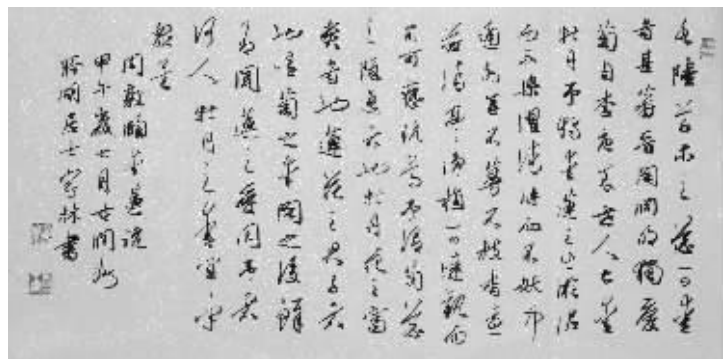 水陸草木之花可愛
者甚蕃晉陶淵明獨愛
菊自李唐來世人甚愛
牡丹予獨愛蓮之出淤泥
而不染濯清漣而不妖中
通外直不蔓不枝香遠
益清亭亭淨植可遠觀而
不可褻玩焉予謂菊花
之隱逸者也牡丹花之富
貴者也蓮花之君子者
也噫菊之愛陶之後鮮
有聞蓮之愛同予者
何人牡丹之愛宜乎
眾矣
周敦頤愛蓮說
甲午歲七月
居士家林書